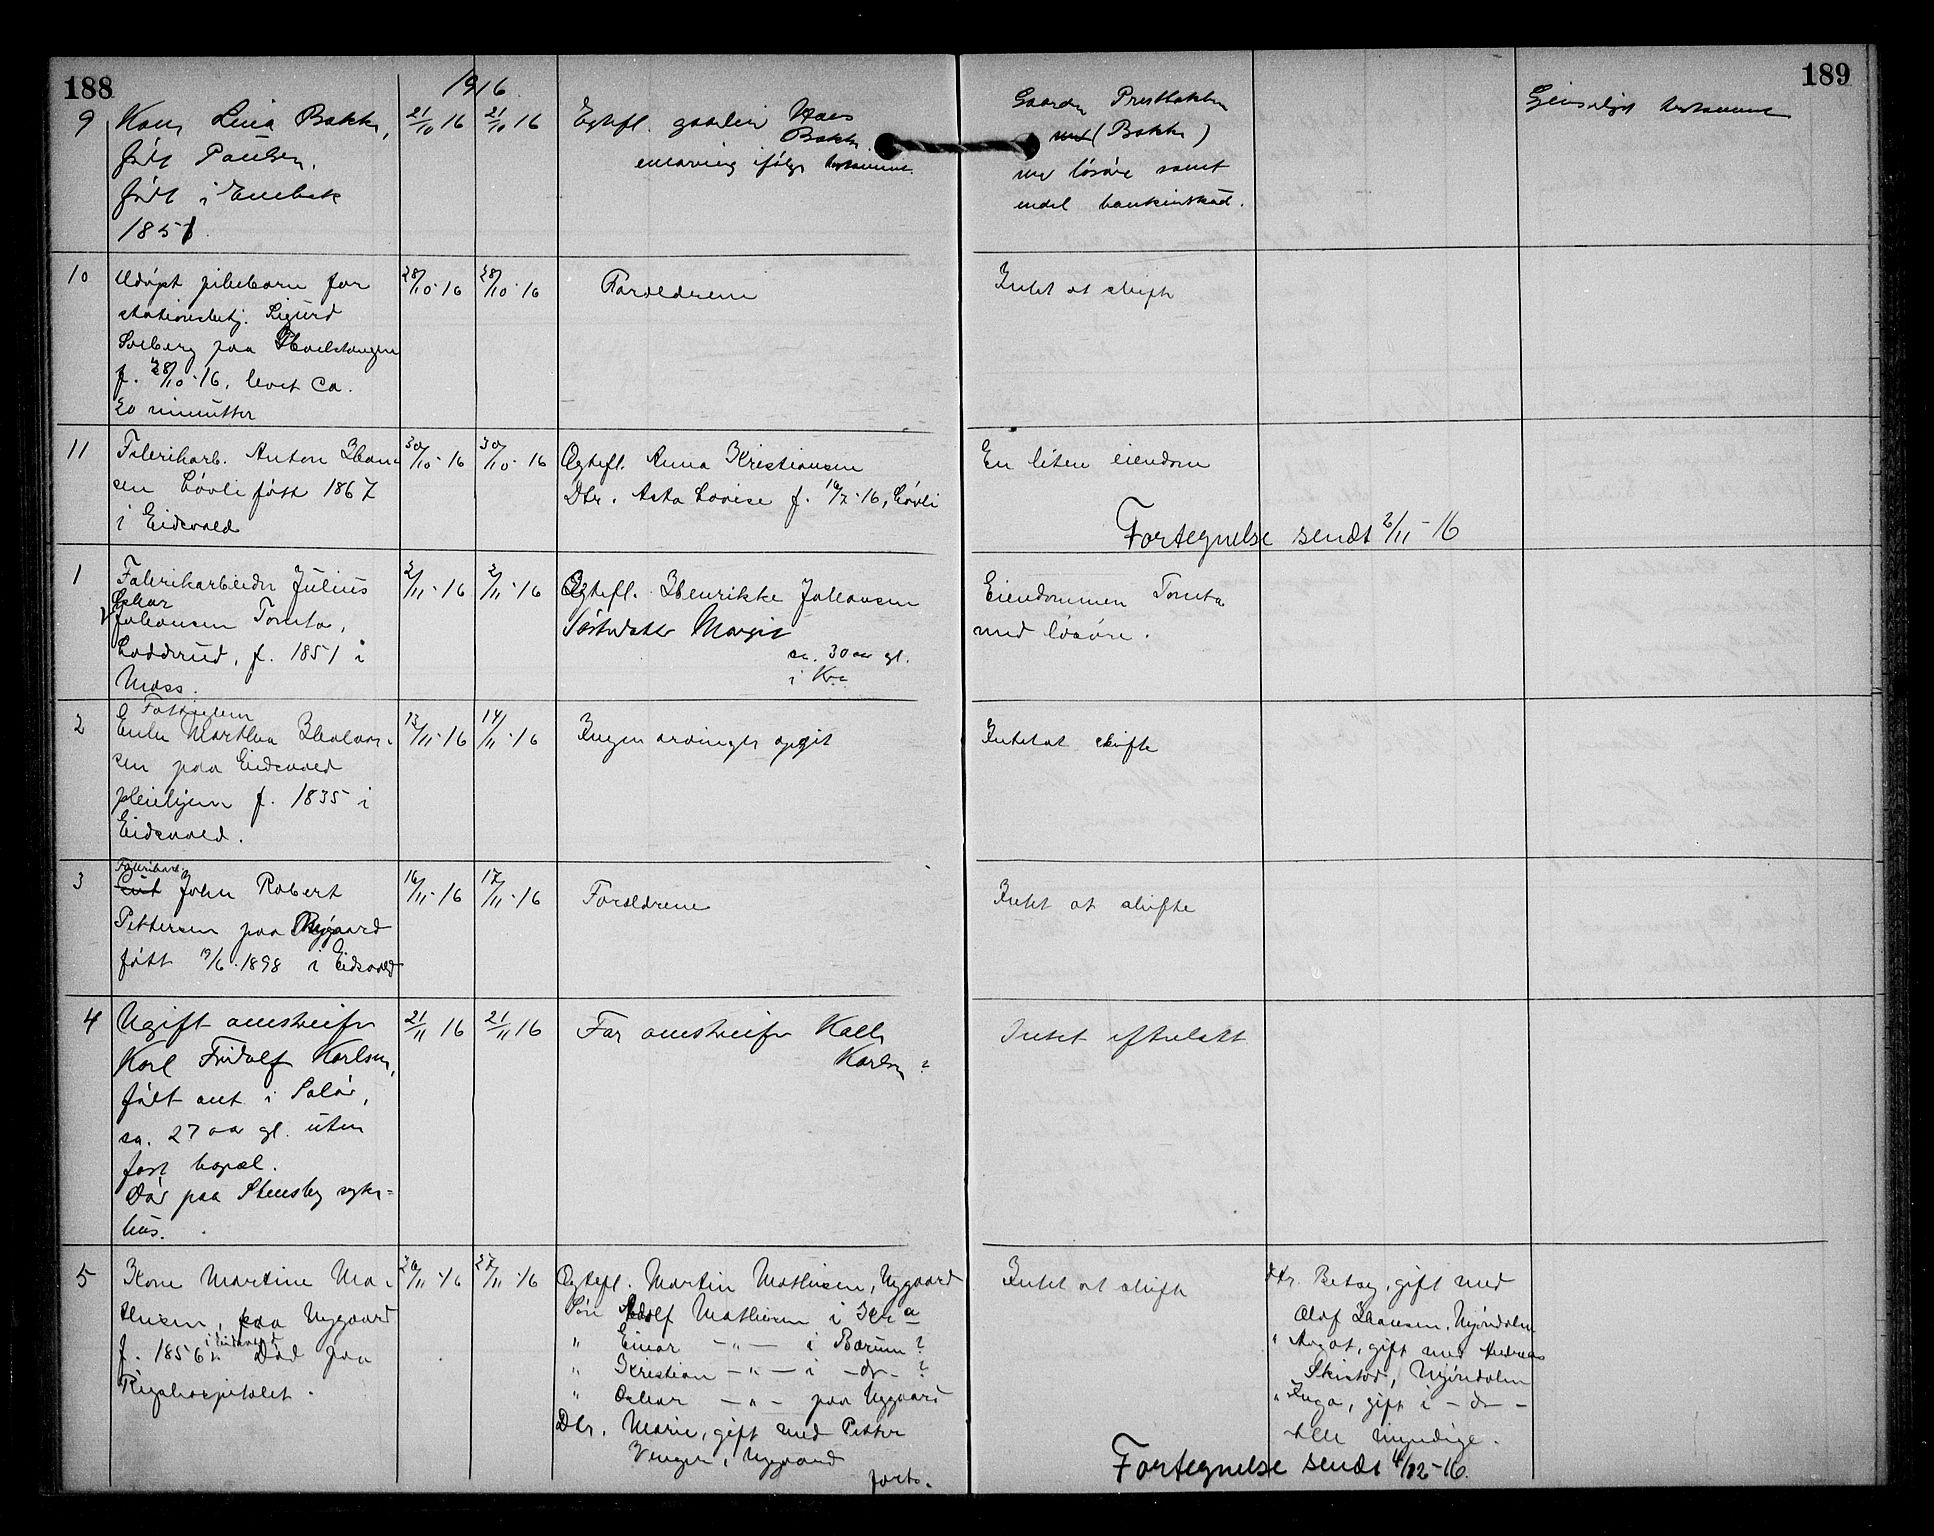 188
1916
189
9 Kone Lina Bakke, 21/10 16 21/10 16 Egtefl. gaardeier Hans
Bakke.
født Paulsen.
enearving ifølge testamente.
født i Enebak
1851.
Gaarden Prestbakken
(Bakke)
med løsøre samt
endel bankinskud.
Gjensidigt testamente
10 Udøpt pikebarn for 28/10-16 28/10-16 Forældrene Intet at skifte
stationsbetj. Sigurd
Solberg paa
f. 28/10-16, levet ca.
20 minutter
11 Fabrikarb. Anton Han- 30/10-16 30/10-16 Egtefl. Anna Kristiansen En liten eiendom
sen Løvli født 1867 Dtr. Asta Lovise f. 16/7-16, Løvli
i Eidsvold
Fortegnelse sendt 2/11-16
1 Fabrikarbeider Julius 2/11-16 2/11-16 Egtefl. Henrikke Johansen Eiendommen Tomta
Oskar
Johansen Tomta, Søsterdatter Margit med løsøre.
Lodderud, f. 1851 i ca. 30 aar gl.
Moss. i Kra
2 Fattiglem
Enke Marthea Halvor- 13/11-16 14/11-16 Ingen arvinger opgit Intet at skifte
sen paa Eidsvold
pleiehjem f. 1835 i
Eidsvold.
3 Fabrikarb.
John Robert 16/11-16 17/11-16 Forældrene Intet at skifte
Pettersen paa Nygaard
født 19/6-1898 i Eidsvold
4 Ugift omstreifer 21/11 16 21/11 16 Far omstreifer Kalle Intet efterlatt
Karl Fridolf Karlsen, Karlsen?
født ant. i Solør,
ca. 27 aar gl. uten
fast bopæl.
Død paa Stensby syke-
hus.
5 Kone Martine Ma- 26/11-16 27/11-16 Egtefl. Martin Mathisen, Nygaard Intet at skifte
thisen, paa Nygaard Søn Adolf Mathisen i Kra
f. 1856 i Eidsvold. Død paa " Einar -"- i Bærum?
Rigshospitalet. " Kristian -"- i -do- ?
" Oskar -"- paa Nygaard
Dtr. Marie, gift med Petter
Venger, Nygaard
forts.
Dtr. Betsy, gift med
Olaf Hansen, Mjøndalen
" Aagot, gift med Andreas
Skistad, Mjøndalen
" Inga, gift i -do-
Alle myndige.
Fortegnelse sendt 4/12-16